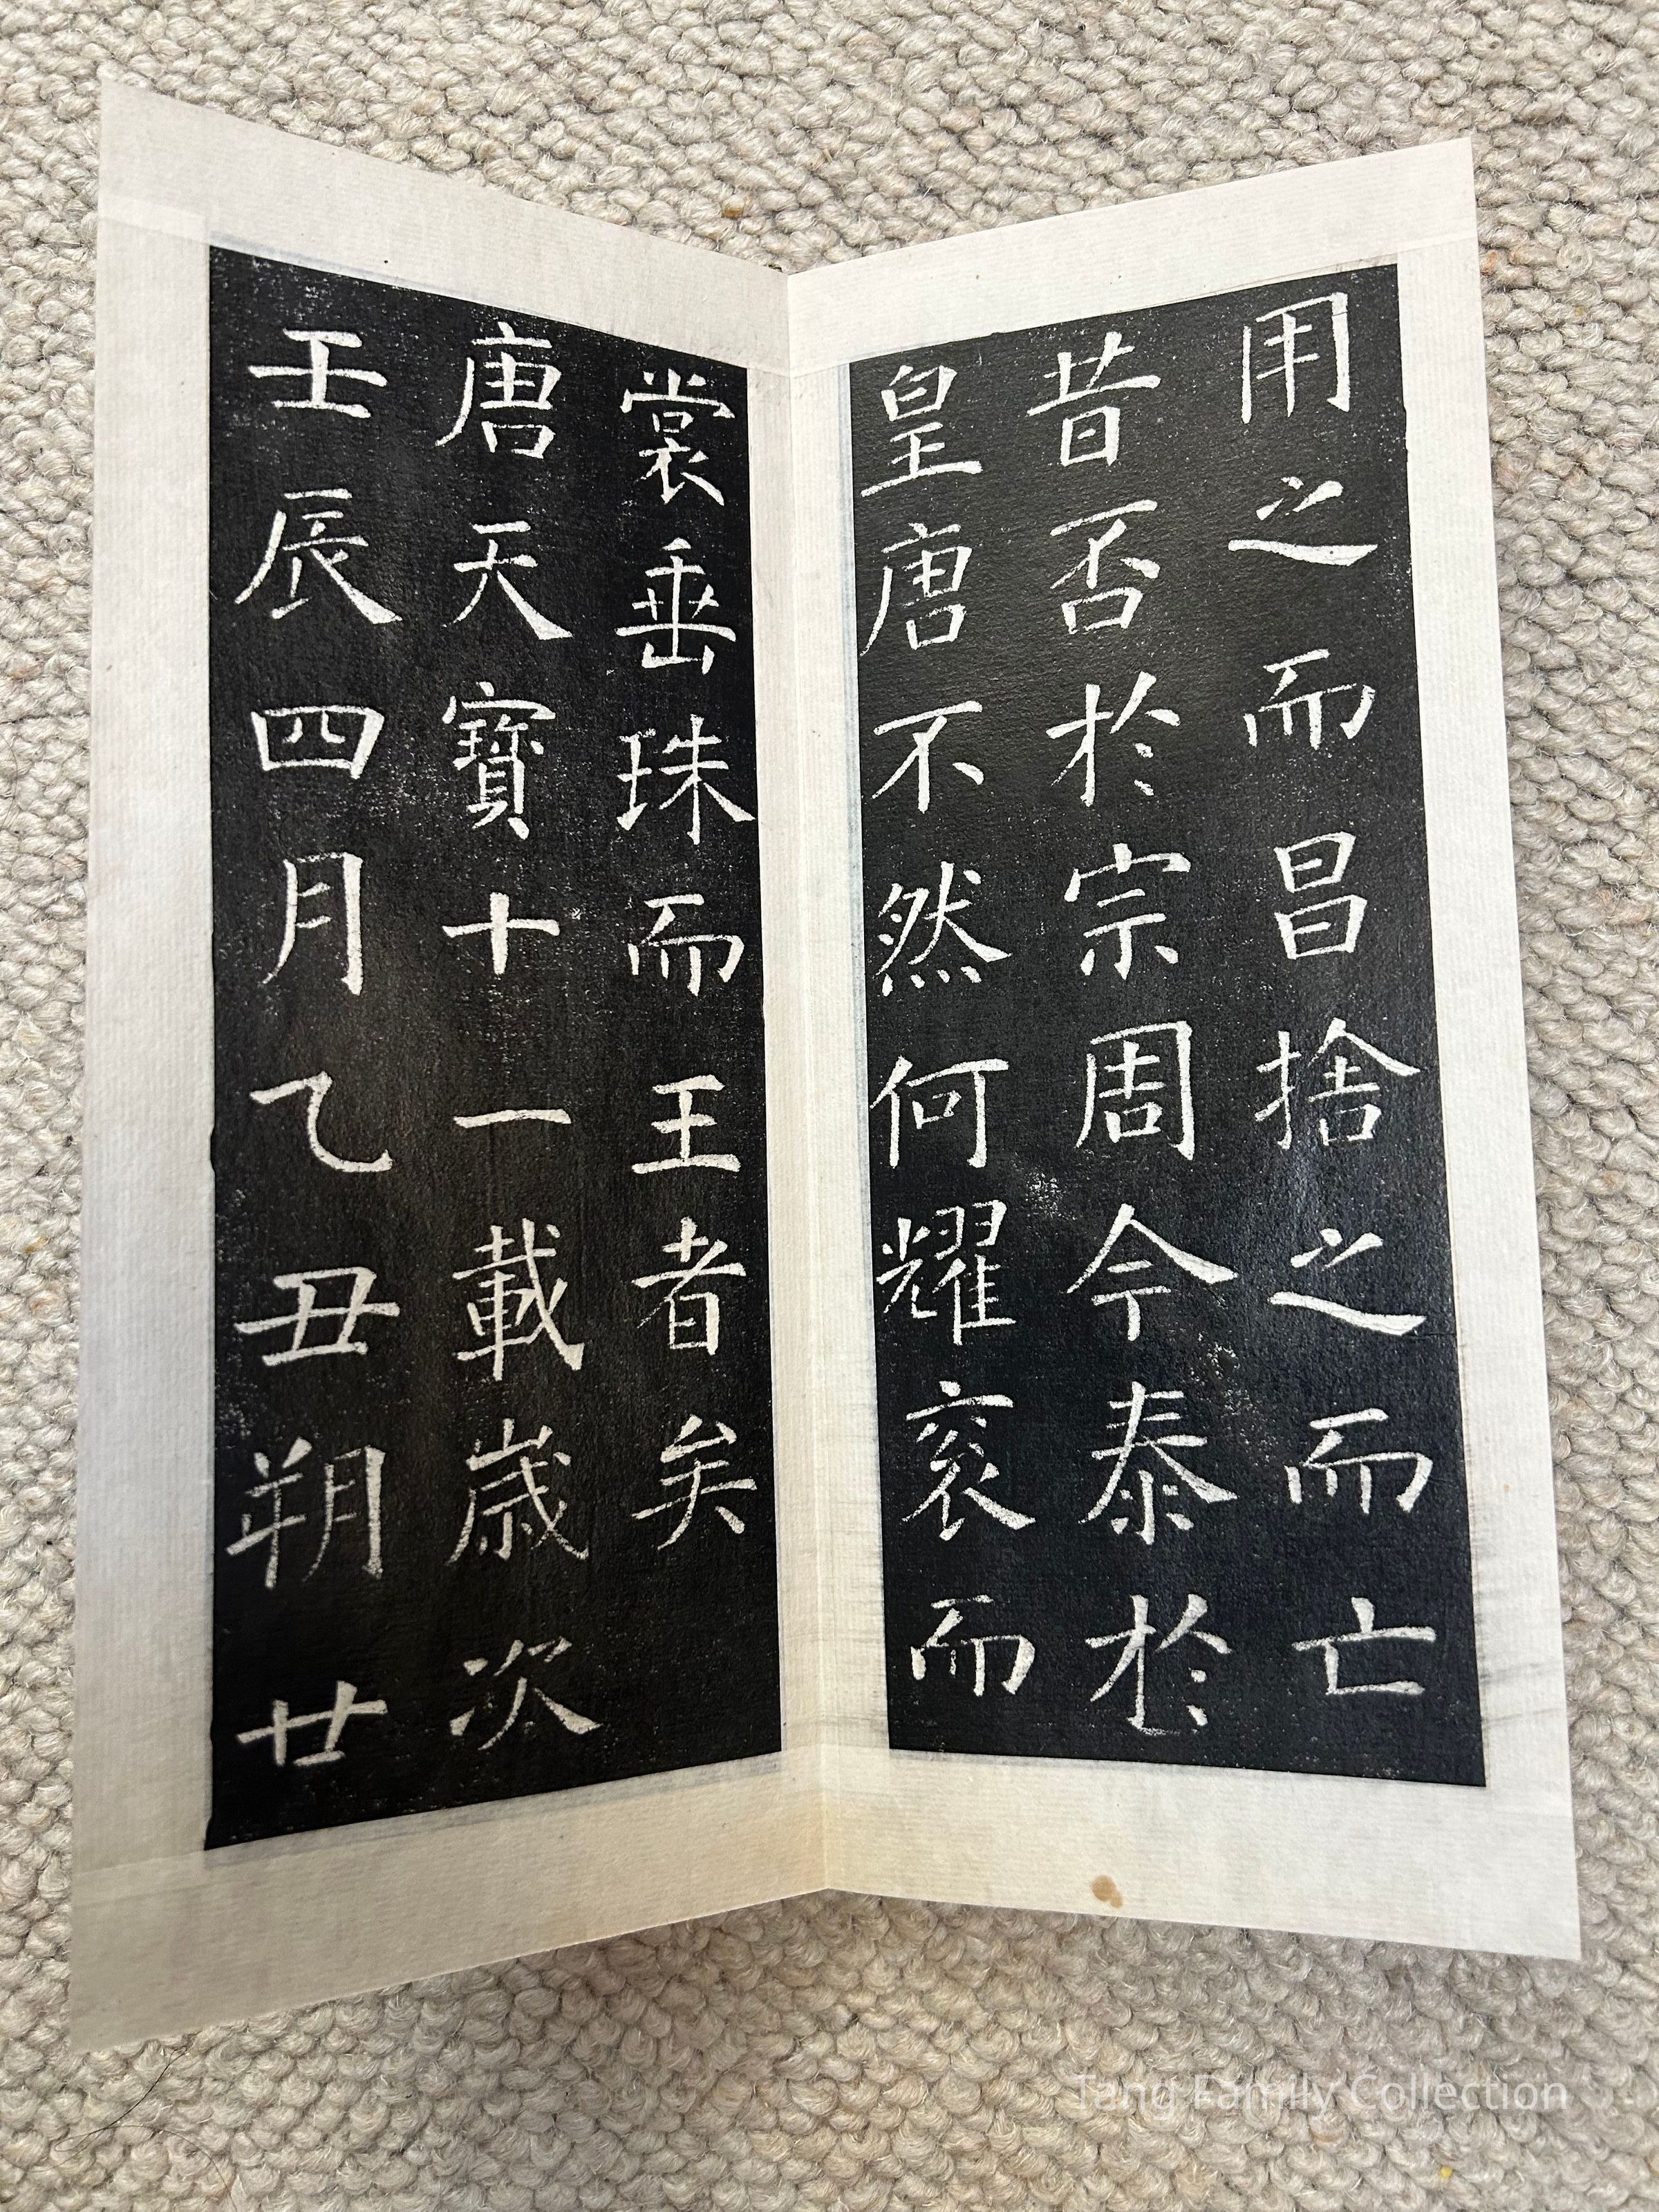 用之而昌捨之而亡
昔否於宗周今泰於
皇唐不然何耀衮而
裳垂珠而王者矣
唐天寶十一載歲次
壬辰四月乙丑朔廿
Tang Family Collection